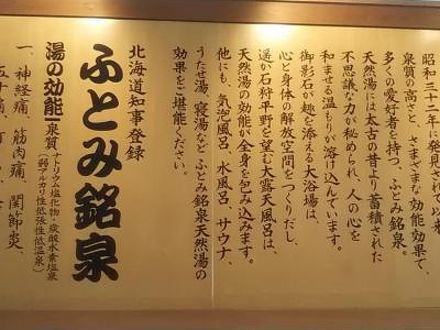 昭和三十二年に発見されて以来
泉質の高さと、さまざまな効能効果で、
多くの愛好者を持つ、ふとみ銘泉。
天然湯には太古の昔より蓄積された
不思議な力が秘められ、人の心を
和ませる温もりが溶け込んでいます。
御影石が趣を添える大浴場は、
心と身体の解放空間をつくりだし、
遥か石狩平野を望む大露天風呂は、
天然湯の効能が全身を包み込みます。
他にも、気泡風呂、水風呂、サウナ、
うたせ湯、寝湯など、ふとみ銘泉天然湯の
効果をご堪能ください。
北海道知事登録
ふとみ銘泉
湯の効能 泉質 ナトリウム塩化物・炭酸水素塩泉
(弱アルカリ性低張性低温泉)
一、神経痛、筋肉痛、関節炎、